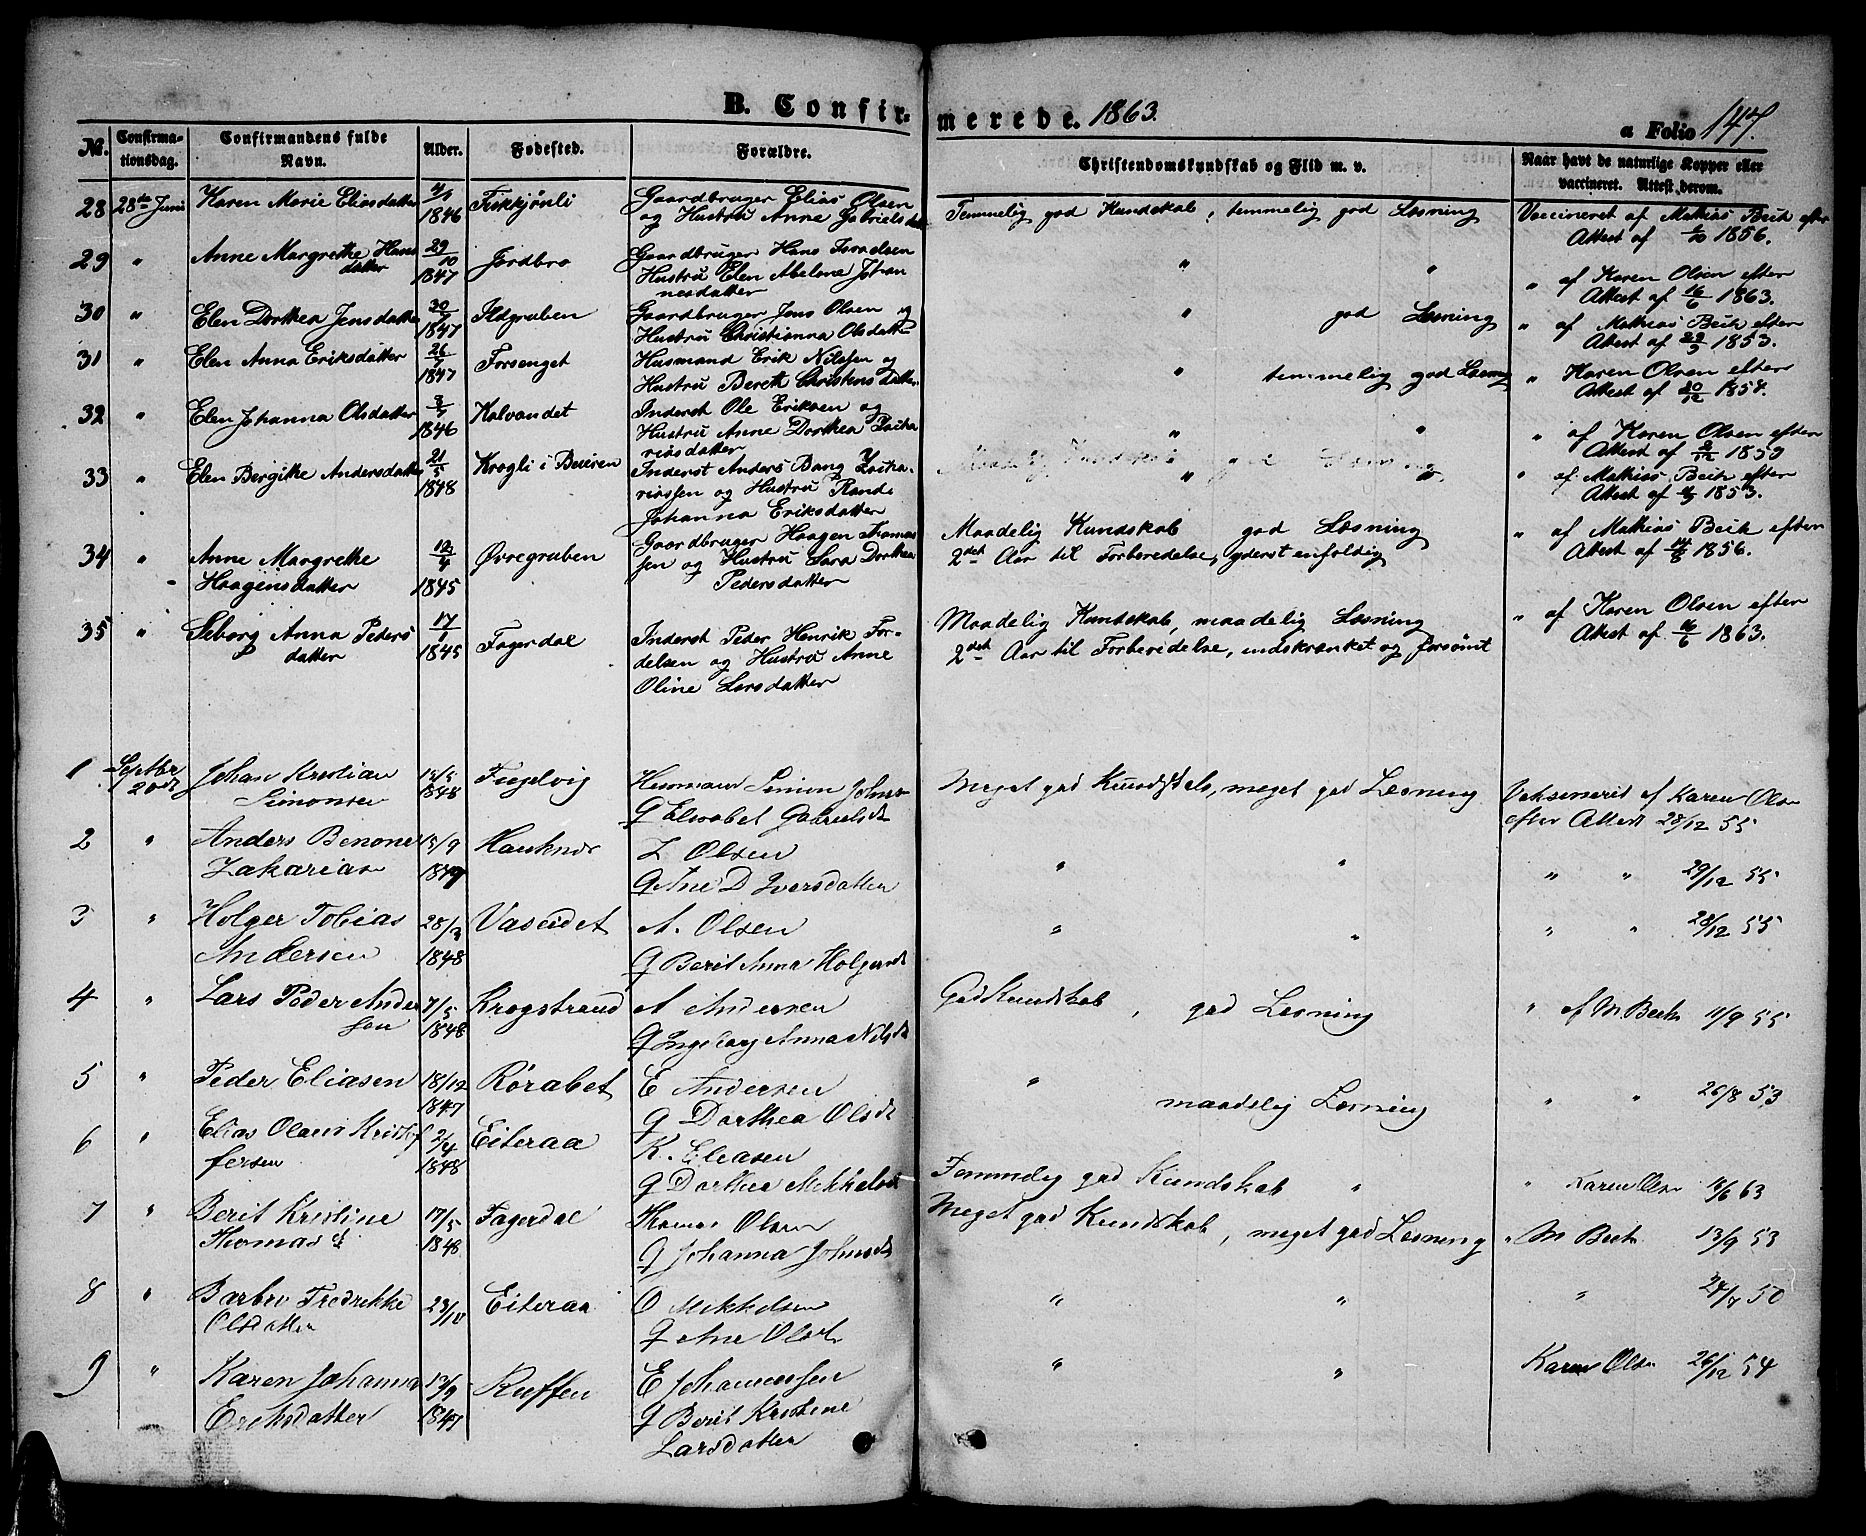 B. Confirmerede. 1863.
a Folio 147.
Nr. Confirmationsdag. Confirmandens fulde Navn. Alder. Fødested. Forældre. Christendomskundskab og Flid m. v. Naar havt de naturlige Kopper eller vaccineret. Attest derom.
28 28de Juni Karen Marie Eliasdatter 1846 Gaardbruger Elias Olsen Temmelig god Kundskab, temmelig god Læsning Vaccineret af Mathias Bech efter
og Hustru Anne Gabrielsdat Attest af 1856.
29 " Anne Margrethe Hans 29/10 Jordbro Gaardbruger Hans " " " af Karen Olsen efter
datter 1847 Hustru Elen Abelone Johan Attest af 16/6 1863.
nesdatter
30 " Elen Dorthea Jensdatter 1847 Ildgruben Gaardbruger Jens Olsen og " god Læsning " af Mathias Bech efter
Hustru Christianna Olsdatter Attest af 1853.
31 " Elen Anna Eriksdatter 1847 Forsenget Husmand Erik Nilssen og " temmelig god Læsning " Karen Olsen efter
Hustru Bereth Christensdatter Attest af 20/12 1854.
32 " Elen Johanna Olsdatter 1846 Kalvandet Inderst Ole Eriksen og " " " af Karen Olsen efter
Hustru Anne Dorthea Zacha Attest af
riasdatter
33 " Elen Bergitte Andersdatter 21/5 1848 Krogli i Beieren Inderst Anders Bang Zacha- " " " af Mathias Bech efter
riassen og Hustru Rande Attest af 1853.
Johanna Eriksdatter
34 " Anne Margrethe 12/4 Øvregruben Gaardbruger Haagen Thomas Maadelig Kundskab god Læsning " af Mathias Bech efter
Haagensdatter 1845 sen og Hustru Sara Dorthea 2det Aar til Forberedelse, yderst enfoldig Attest af 1856.
Pedersdatter
35 " Seborg Anna Peders 17/1 Fagerdal Inderst Peder Henrik For- Maadelig Kundskab, maadelig Læsning " af Karen Olsen efter
datter 1845 delsen og Hustru Anne 2det Aar til Forberedelse, indskrænket og forsømt Attest af 16/6 1863.
Oline Larsdatter
1 Septbr 20de Johan Kristian 1848 Husmand Simon Johns Meget god Kundskab, meget god Læsning Vaksineret af Karen Olsen
Simonsen G Elisabet Gabrielsdt efter Attest 28/12 55
2 " Anders Benone 13/9 Hauknes Z Olsen " " " " 29/12 55
Zakarias G Ane D Iversdatter
3 " Holger Tobias 28/3 Vaseidet A. Olsen " " " " 28/12 55
Andersen 1848 G Berit Anna Holgersdt
4 " Lars Peder Ander 7/5 Krogstrand A Andersen God Kundskab, god Læsning " af M Bech 11/9 55
sen 1848 G Ingeborg Anna Nilsdt
5 " Peder Eliasen 18/12 Rørabet E Andersen " maadelig Læsning " " 26/8 53
1847 G Dorthea Olsdt
6 " Elias Olaus Kristof 2/4 Eiteraa K. Eliasen Temmelig god Kundskab " " Karen Olsn 63
fersen 1848 G Dorthea Mikkelsdt
7 " Berit Kristine 17/5 Fagerdal Thomas Olsen Meget god Kundskab, meget god Læsning " M Bech 13/9 53
Thomasd 1848 G Johanna Johnsdt
8 " Barbro Fredrikke 23/10 Eiteraa O Mikkelsen " " " 50
Olsdatter G Ane Olsdt
9 " Karen Johanna 13/9 E Johannessen " " Karen Olsn 26/12 54
Eriksdatter 1847 G Berit Kristine
Larsdatter